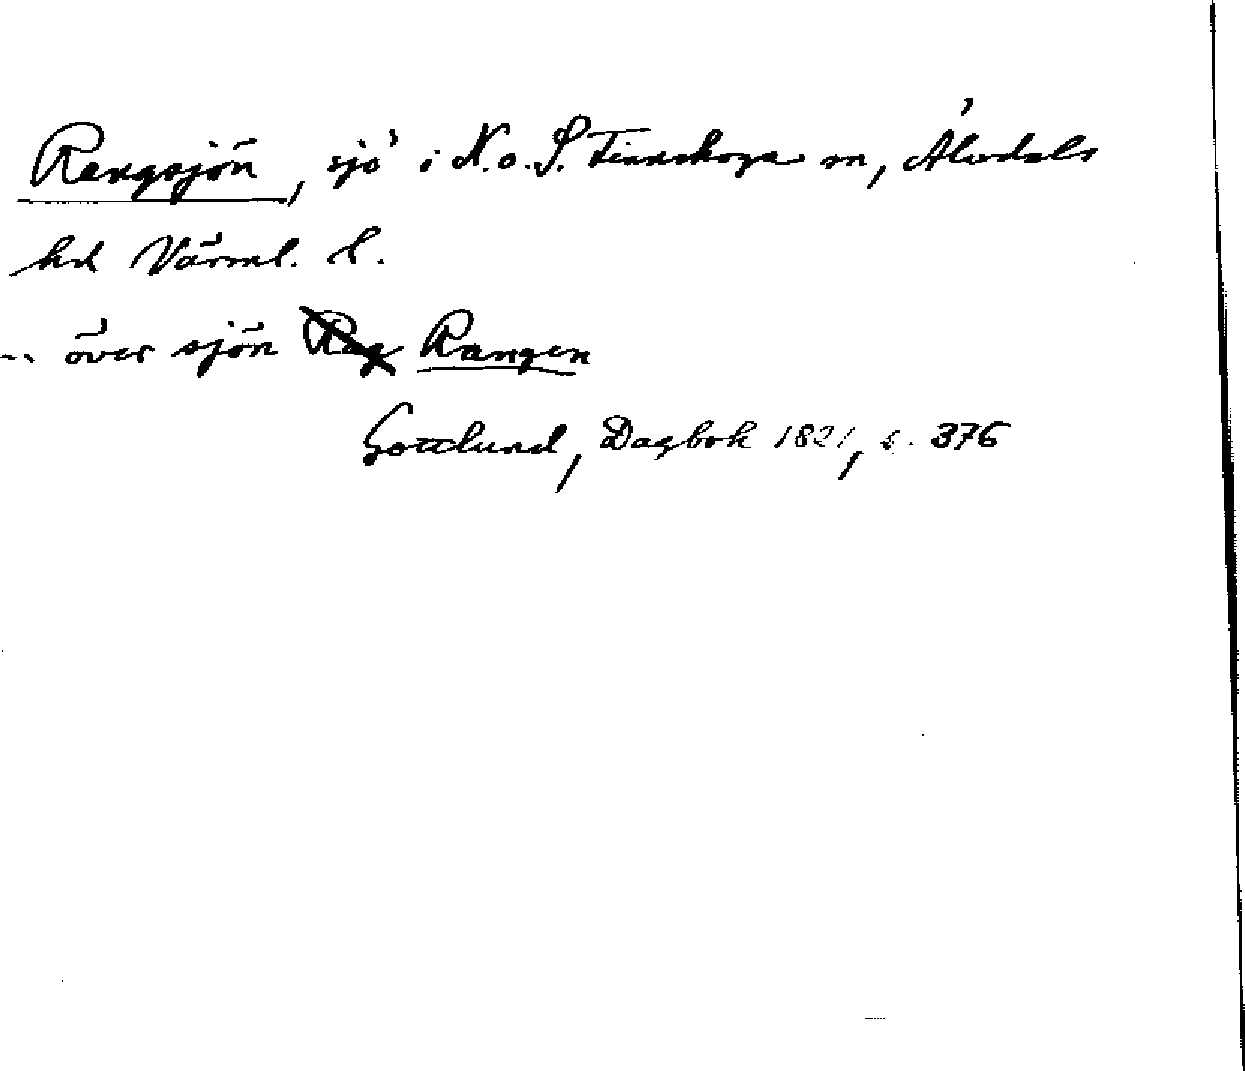 Rangsjön, sjö i N. o. S. Finnskoga sn, Älvdals
hd Värml. l.
-- över sjön Rag Rangen
Gottlund, Dagbok 1821, s. 376